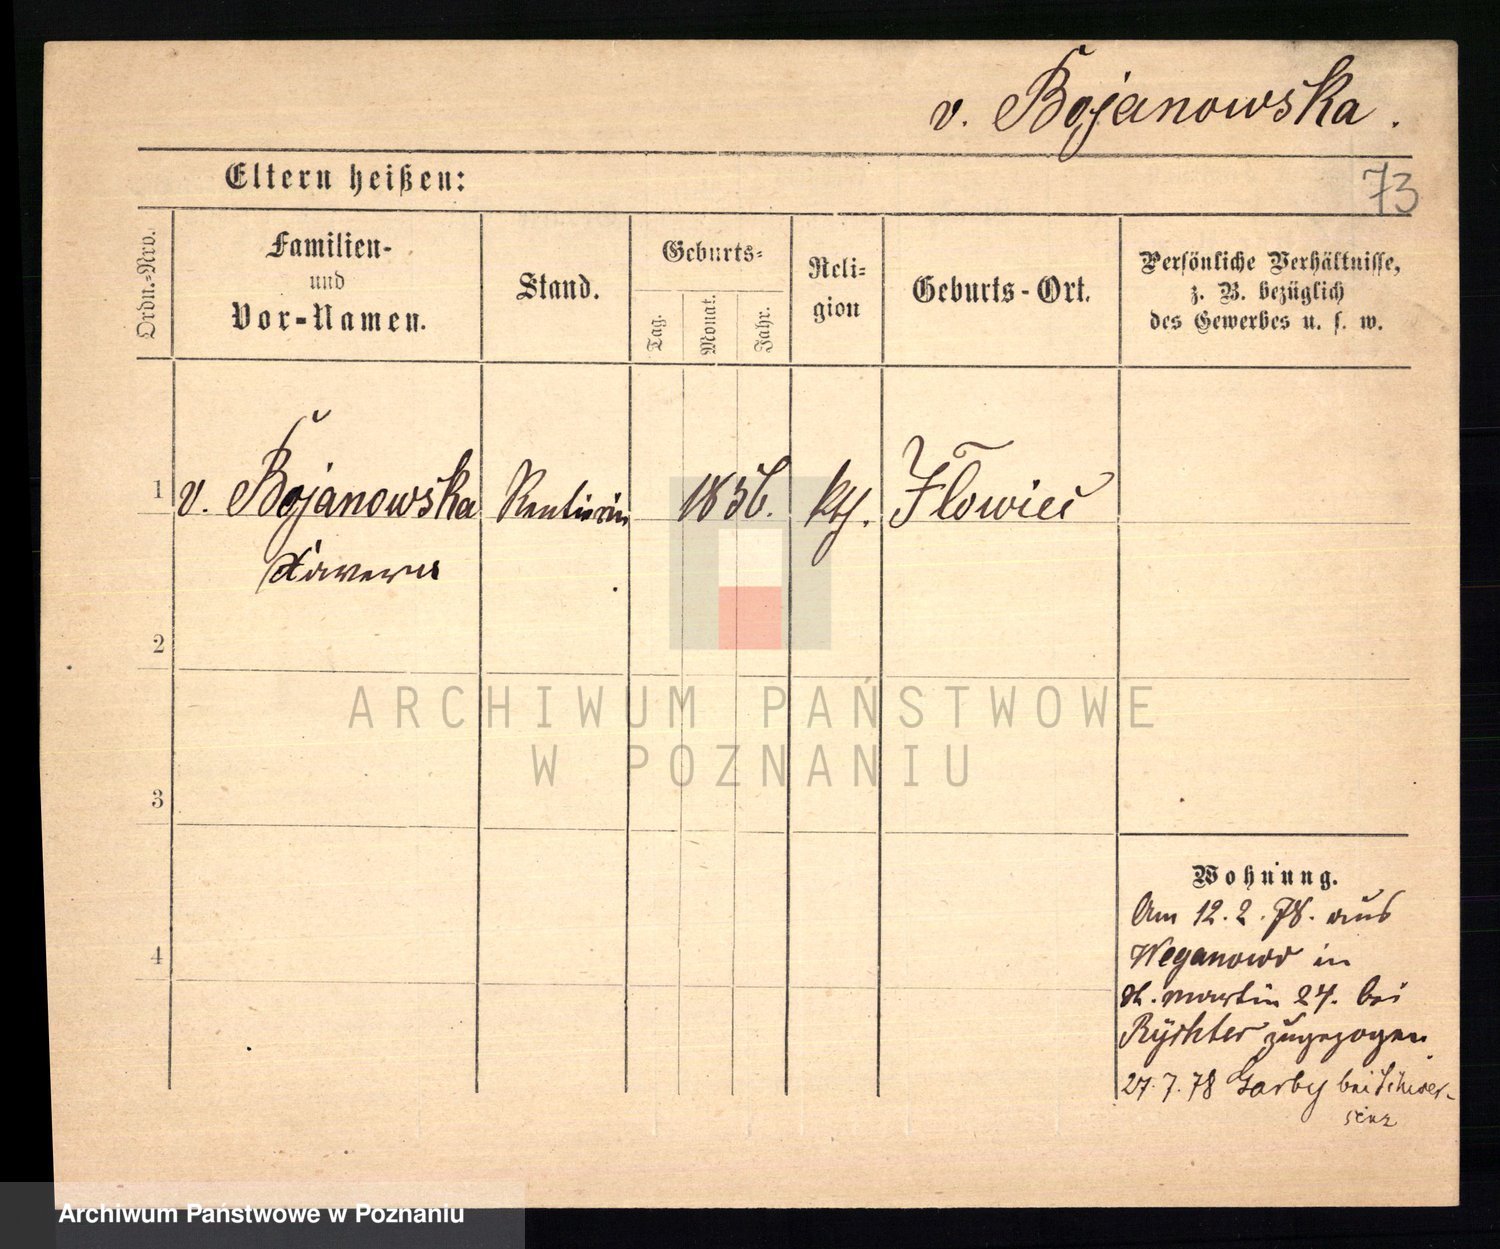 v. Bojanowska.
Eltern heißen:
73
Ordn.-Nro.
Familien-
und
Vor-Namen.
Stand.
Geburts-
Tag.
Monat.
Jahr.
Reli-
gion
Geburts-Ort.
Persönliche Verhältnisse,
z. B. bezüglich
des Gewerbes u. s. w.
1 v. Bojanowska Rentierin 1856. kth. Iłowiec
Xawera
2
3
4
ARCHIWUM PAŃSTWOWE
W POZNANIU
Wohnung.
Am 12. 2. 78. aus
Weganowo in
St. Martin 27. bei
Ryschter zugezogen
27. 7. 78 Garby bei Schwer-
senz
Archiwum Państwowe w Poznaniu